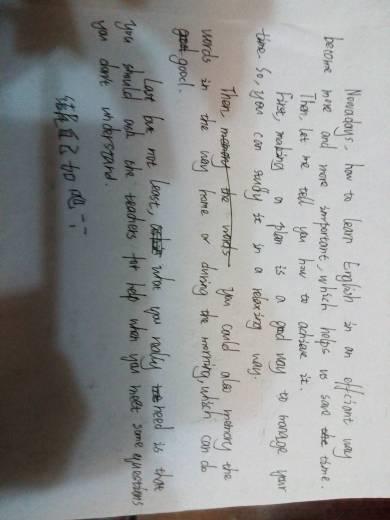 Nowadays, how to learn English in an efficient way
become more and more important, which helps us save time.
Then, let me tell you how to achieve it.
First, making a plan is a good way to manage your
time. So, you can study it in a relaxing way.
Then, memory the words You could also memory the
words in the way home or during the morning, which can do
good.
Last but not least, what you really need is that
you should ask the teachers for help when you meet some questions
you don't understand.
结尾自己加吧